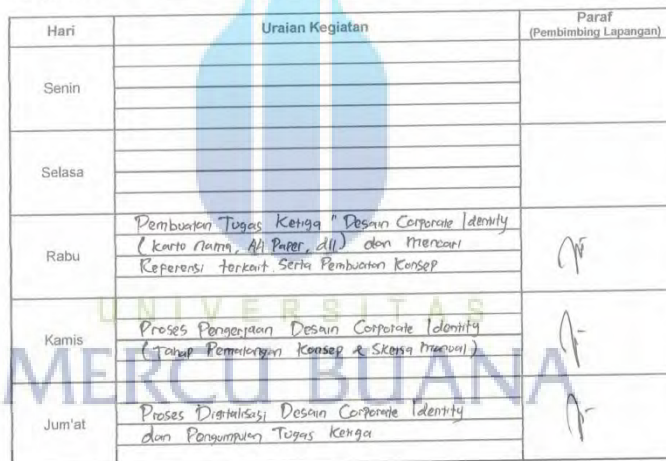 Hari Uraian Kegiatan Paraf
(Pembimbing Lapangan)
Senin
Selasa
Rabu
Pembuatan Tugas Ketiga "Desain Corporate Identity
(kartu nama, A4 Paper, dll) dan mencari
Referensi terkait serta Pembuatan Konsep
UNIVERSITAS
Kamis
Proses Pengerjaan Desain Corporate Identity
(Tahap Pematangan Konsep & Skersa Manual)
MERCU BUANA
Jum'at
Proses Digitalisasi Desain Corporate Identity
dan Pengumpulan Tugas Ketiga